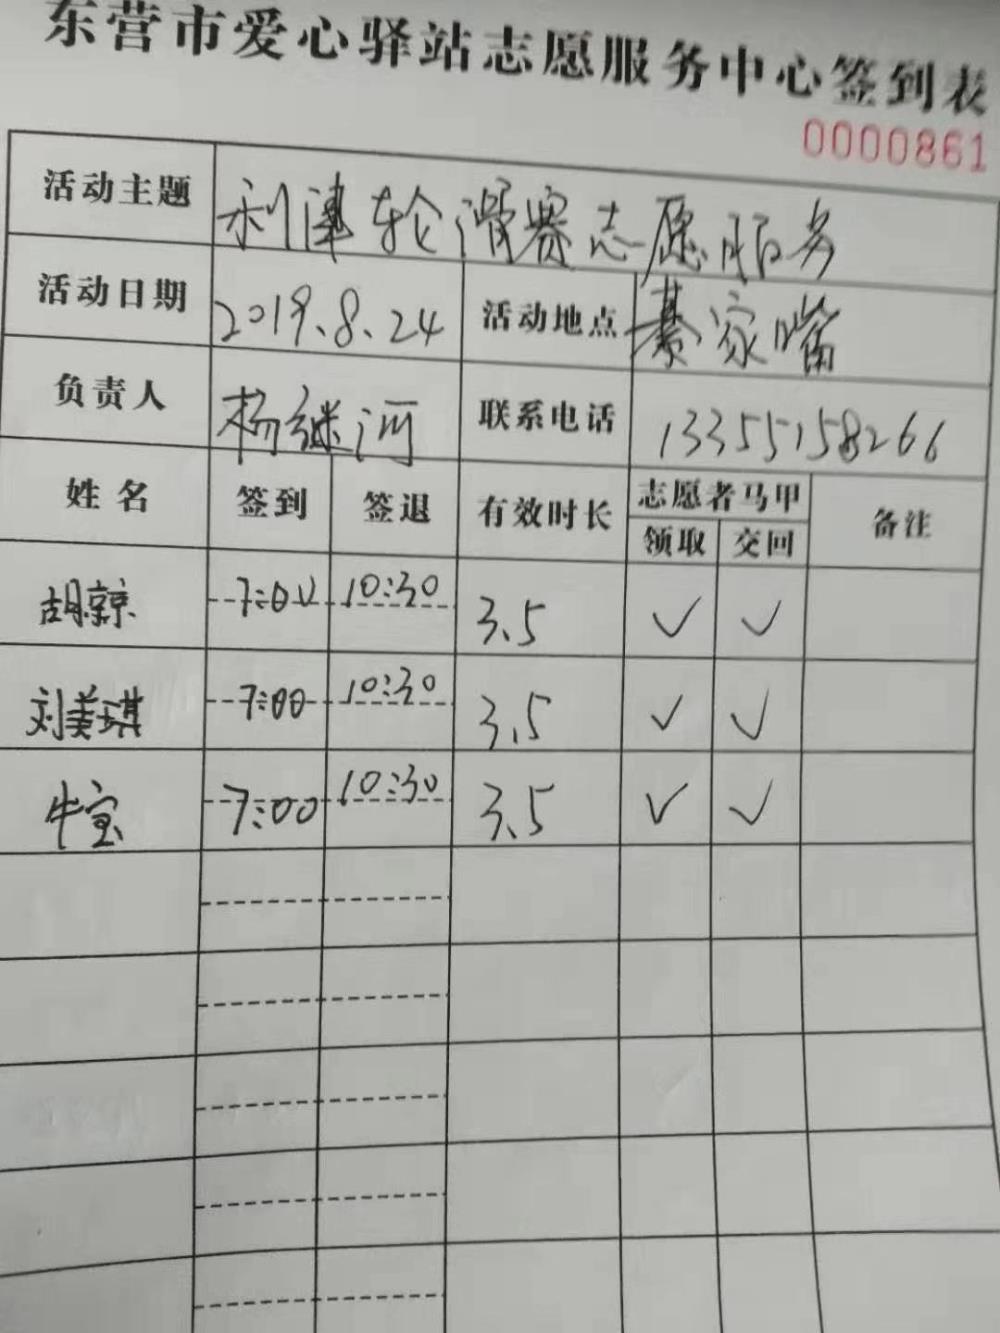 东营市爱心驿站志愿服务中心签到表
0000861
活动主题 利津轮滑赛志愿服务
活动日期 2019.8.24 活动地点 綦家嘴
负责人 杨继河 联系电话 13355158266
姓名 签到 签退 有效时长 志愿者马甲 备注
领取 交回
胡 7:00 10:30 3.5 ✓ ✓
刘美琪 7:00 10:30 3.5 ✓ ✓
牛宝 7:00 10:30 3.5 ✓ ✓